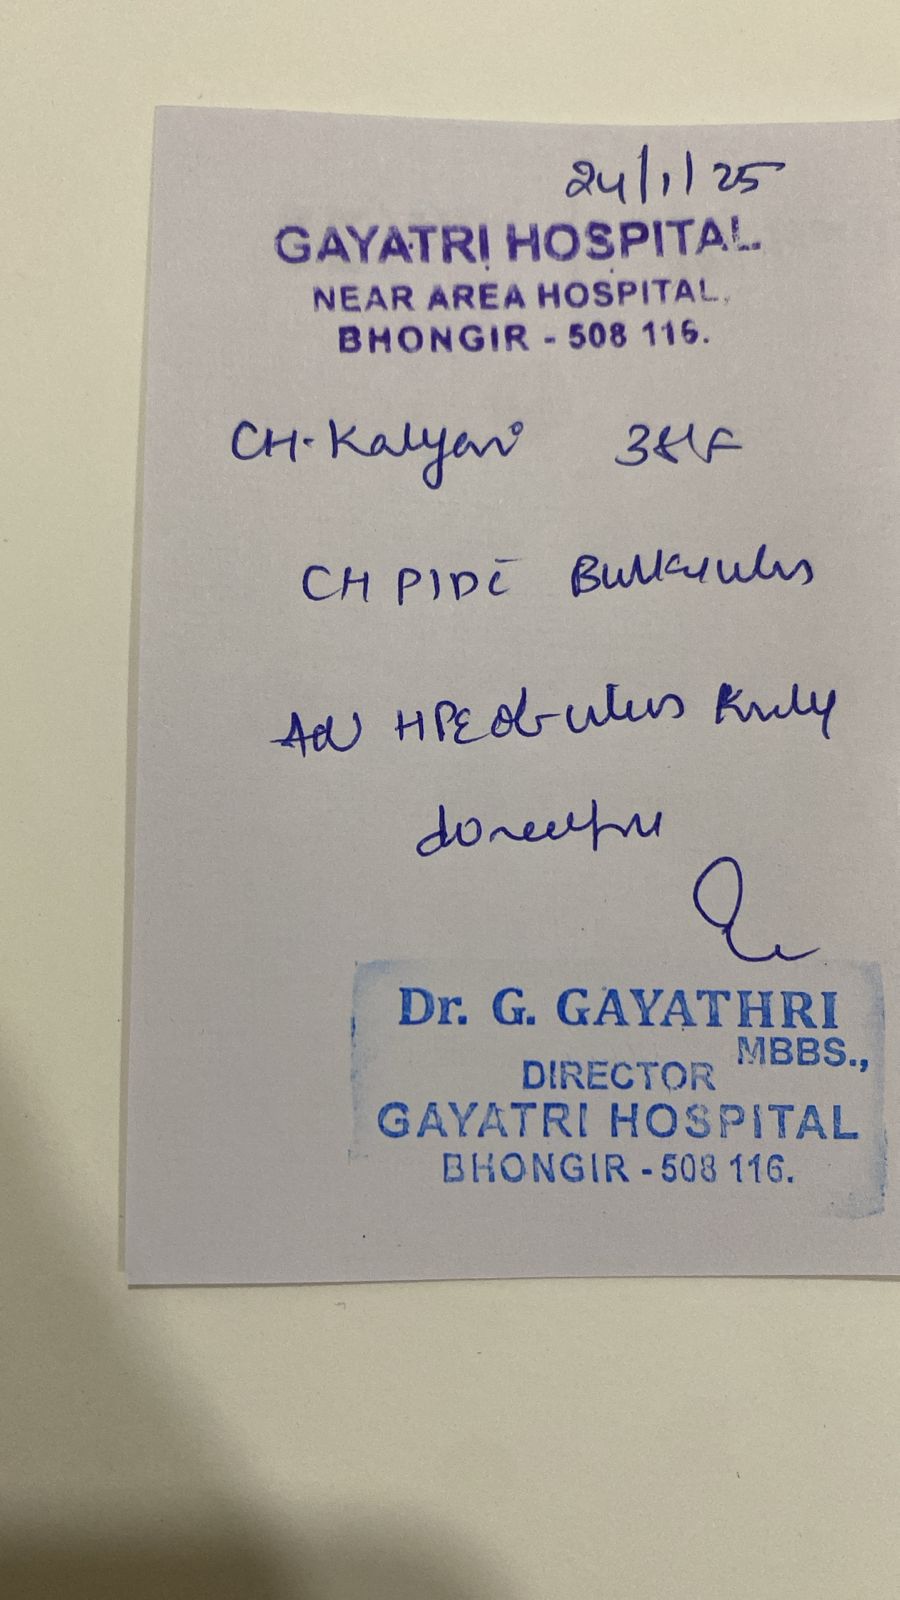 24/1/25
GAYATRI HOSPITAL.
NEAR AREA HOSPITAL,
BHONGIR - 508 116.
CH. Kalyani 38/F
CH PID c̄ Bulky uterus
Adv HPE of uterus Kindly
do needful
Dr. G. GAYATHRI
MBBS.,
DIRECTOR
GAYATRI HOSPITAL
BHONGIR - 508 116.